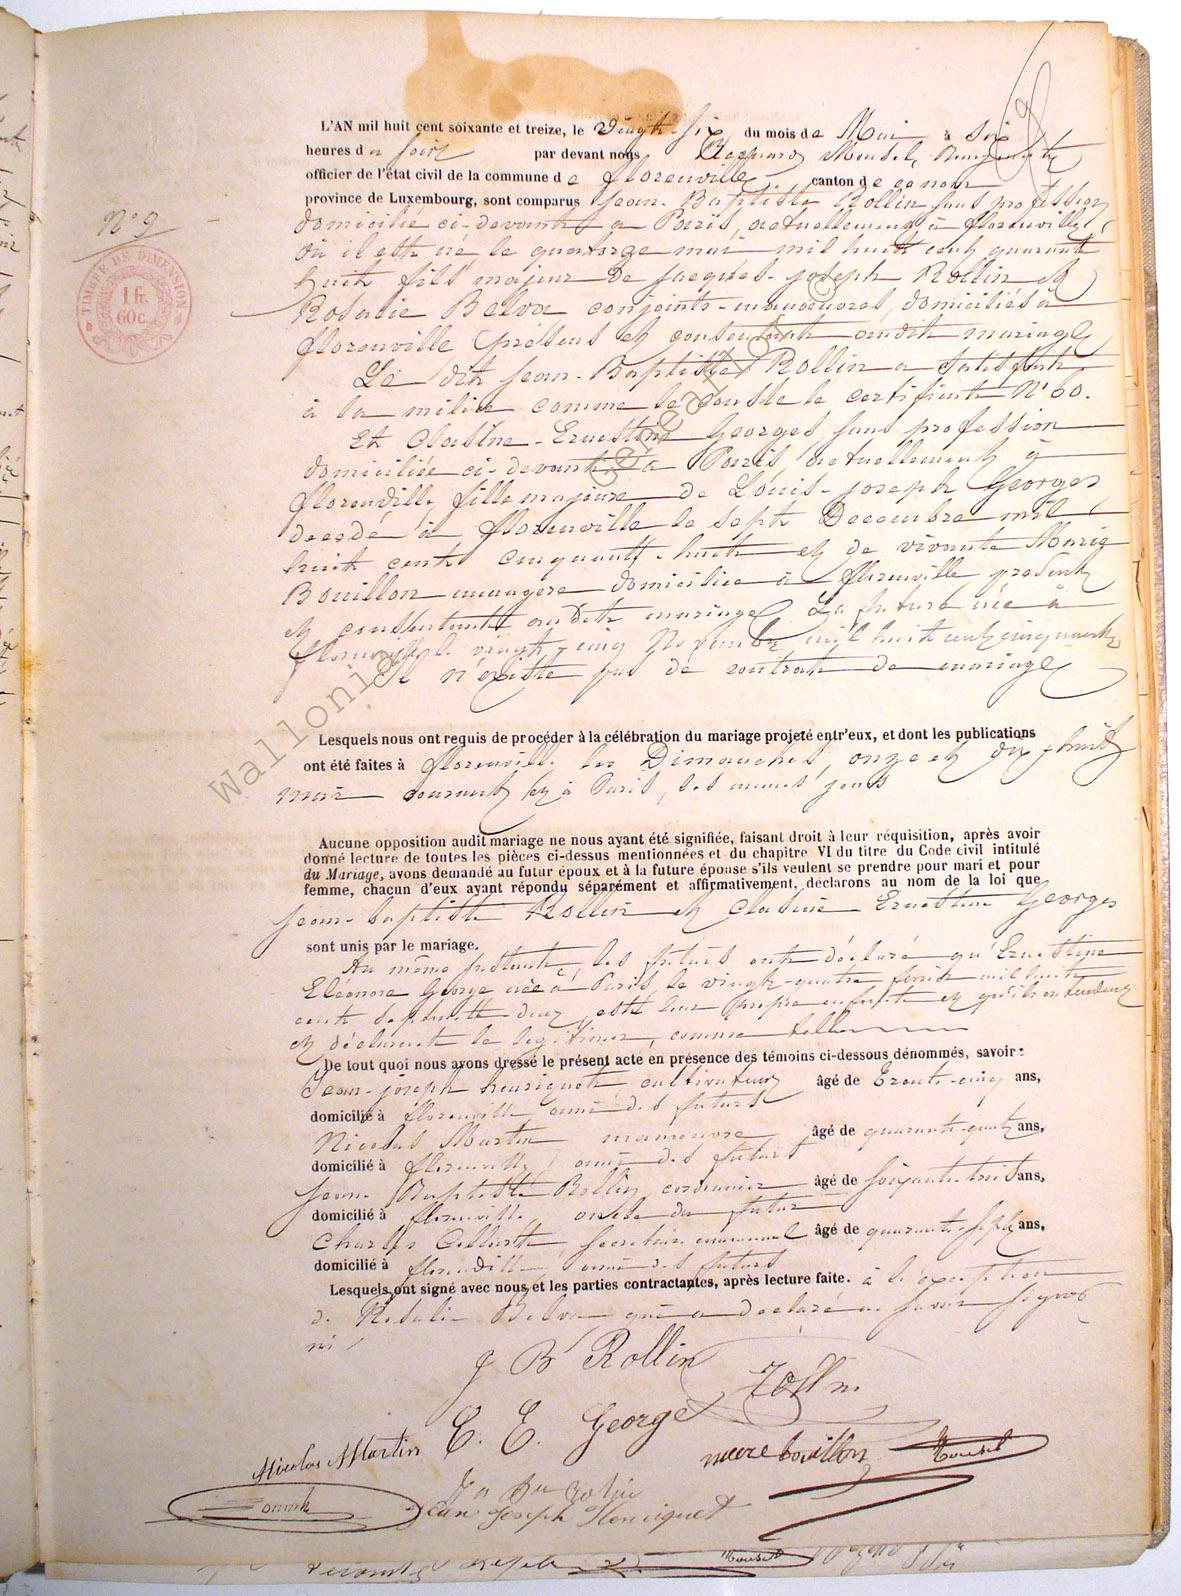 L'AN mil huit cent soixante et treize, le vingt-six du mois de Mai à six
heures du soir par devant nous Mousel, Bourgmestre
officier de l'état civil de la commune de Florenville canton de
province de Luxembourg, sont comparus Jean-Baptiste Rollin sans profession
domicilié ci-devant à Paris, actuellement à Florenville,
où il est né le quatorze mai mil huit cent quarante
huit fils majeur de Jacques-Joseph Rollin et
Rosalie Belva conjoints-manœuvres, domiciliés à
Florenville, présens et consentant audit mariage
N° 9
TIMBRE DE DIMENSION
1 fr.
60c.
Le dit Jean-Baptiste Rollin a satisfait
à la milice comme le constate le certificat N° 60.
Et Clasine-Ernestine Georges sans profession
domiciliée ci-devant à Paris, actuellement à
Florenville, fille majeure de Louis-Joseph Georges
decedé à Florenville le sept Decembre mil
huit cent cinquante-huit et de vivante Marie
Bouillon menagere domiciliée à Florenville présente
et consentante audit mariage. La future née à
Florenville le vingt-cinq Novembre mil huit cent cinquante
Il n'existe pas de contrat de mariage
Lesquels nous ont requis de procéder à la célébration du mariage projeté entr'eux, et dont les publications
ont été faites à Florenville les Dimanches, onze et dix-huit
mai courant et à Paris, les memes jours
Aucune opposition audit mariage ne nous ayant été signifiée, faisant droit à leur réquisition, après avoir
donné lecture de toutes les pièces ci-dessus mentionnées et du chapitre VI du titre du Code civil intitulé
du Mariage, avons demandé au futur époux et à la future épouse s'ils veulent se prendre pour mari et pour
femme, chacun d'eux ayant répondu séparément et affirmativement, déclarons au nom de la loi que
Jean-Baptiste Rollin et Clasine-Ernestine Georges
sont unis par le mariage.
Au même instant, les futurs ont déclaré qu'Ernestine
Eléonore George née à Paris le vingt-quatre février mil huit
cent septante-deux, est leur propre enfant et qu'ils entendent
et déclarent la légitimer, comme telle
De tout quoi nous avons dressé le présent acte en présence des témoins ci-dessous dénommés, savoir:
Jean-Joseph Henriquet, cultivateur âgé de trente-cinq ans,
domicilié à Florenville ami des futurs
Nicolas Martin manœuvre âgé de quarante-quatre ans,
domicilié à Florenville, ami des futurs
Jean Baptiste Rollin, cordonnier âgé de soixante-trois ans,
domicilié à Florenville oncle du futur
Charles secrétaire communal âgé de quarante-sept ans,
domicilié à Florenville ami des futurs
Lesquels ont signé avec nous et les parties contractantes, après lecture faite. à l'exception
de Rosalie Belva qui a declaré ne savoir signer
J B Rollin
E. E. George
Nicolas Martin
marie bouillon
Mousel
Jean Joseph Henriquet
Wallonie Genealtor ©